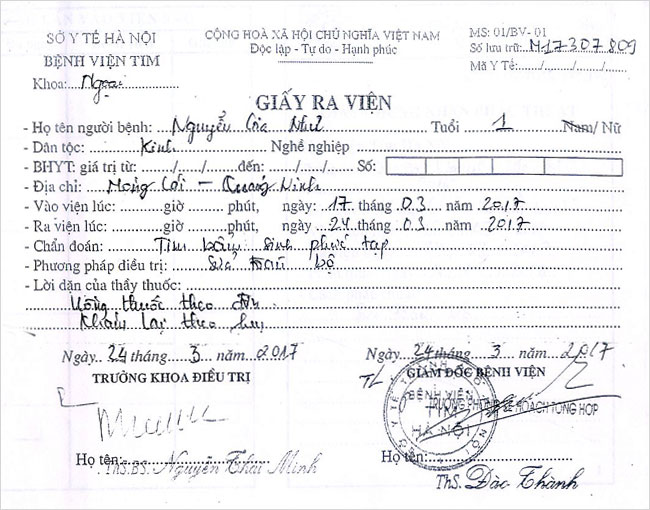 SỞ Y TẾ HÀ NỘI
BỆNH VIỆN TIM
Khoa: Ngoại
CỘNG HOÀ XÃ HỘI CHỦ NGHĨA VIỆT NAM
Độc lập - Tự do - Hạnh phúc
MS: 01/BV- 01
Số lưu trữ: M17307809
Mã Y Tế:....../....../......
GIẤY RA VIỆN
- Họ tên người bệnh: Nguyễn Gia Như Tuổi 1 Nam/ Nữ
- Dân tộc: Kinh Nghề nghiệp
- BHYT: giá trị từ: ....../....../...... đến: ....../....../...... Số:
- Địa chỉ: Móng Cái - Quảng Ninh
- Vào viện lúc: ......giờ ......phút, ngày: 17 tháng 03 năm 2017
- Ra viện lúc: ......giờ ......phút, ngày: 24 tháng 03 năm 2017
- Chẩn đoán: Tim bẩm sinh phức tạp
- Phương pháp điều trị: Sửa toàn bộ
- Lời dặn của thầy thuốc:
Uống thuốc theo đơn
Khám lại theo hẹn
Ngày 24 tháng 3 năm 2017
TRƯỞNG KHOA ĐIỀU TRỊ
Họ tên:
ThS.BS. Nguyễn Thái Minh
Ngày 24 tháng 3 năm 2017
TL GIÁM ĐỐC BỆNH VIỆN
TRƯỞNG PHÒNG KẾ HOẠCH TỔNG HỢP
BỆNH VIỆN
TIM
HÀ NỘI
Họ tên:
ThS. Đào Thành